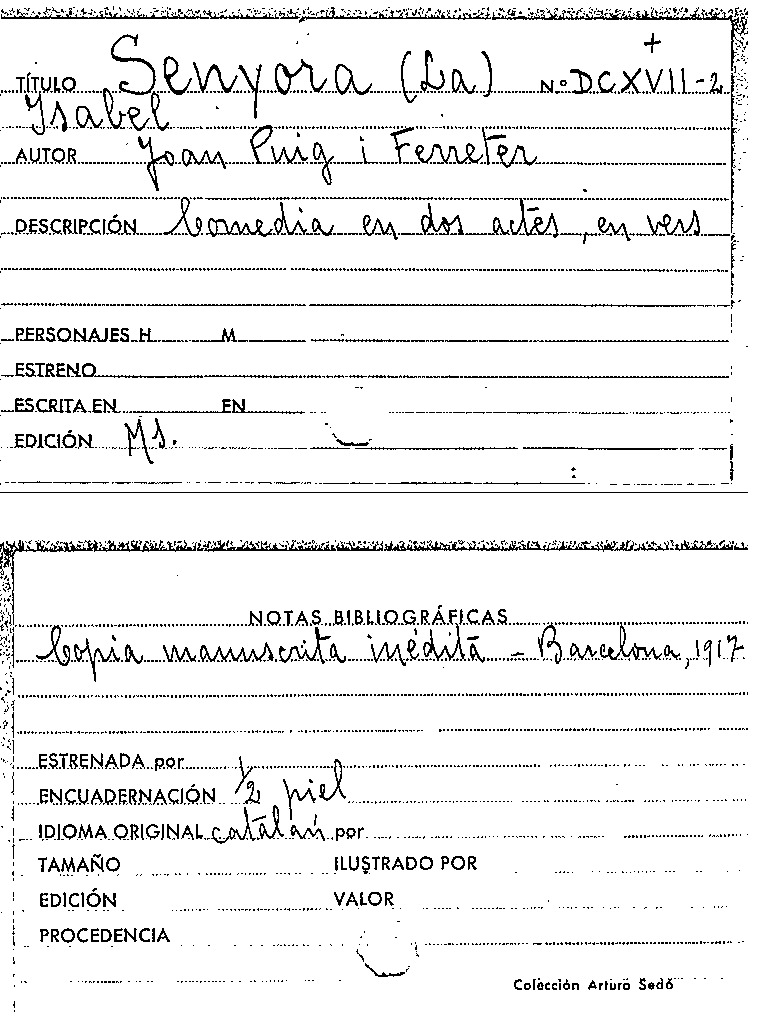 TÍTULO Senyora (La) Nº DCXVII-2
Ysabel
AUTOR Joan Puig i Ferreter
DESCRIPCIÓN Comedia en dos actes, en vers
PERSONAJES H M
ESTRENO
ESCRITA EN EN
EDICIÓN Ms.
NOTAS BIBLIOGRÁFICAS
Copia manuscrita inédita - Barcelona, 1917
ESTRENADA por
ENCUADERNACIÓN 1/2 piel
IDIOMA ORIGINAL catalán por
TAMAÑO ILUSTRADO POR
EDICIÓN VALOR
PROCEDENCIA
Colección Arturo Sedó